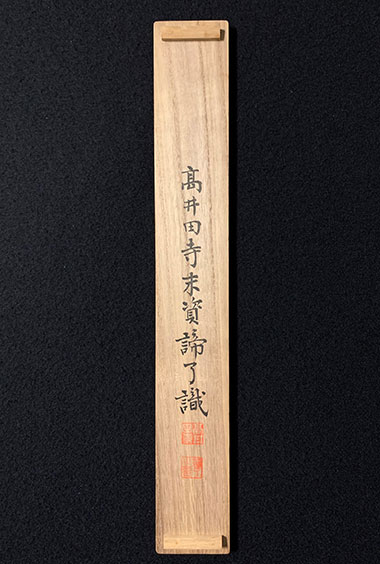 髙井田寺末資諦了識